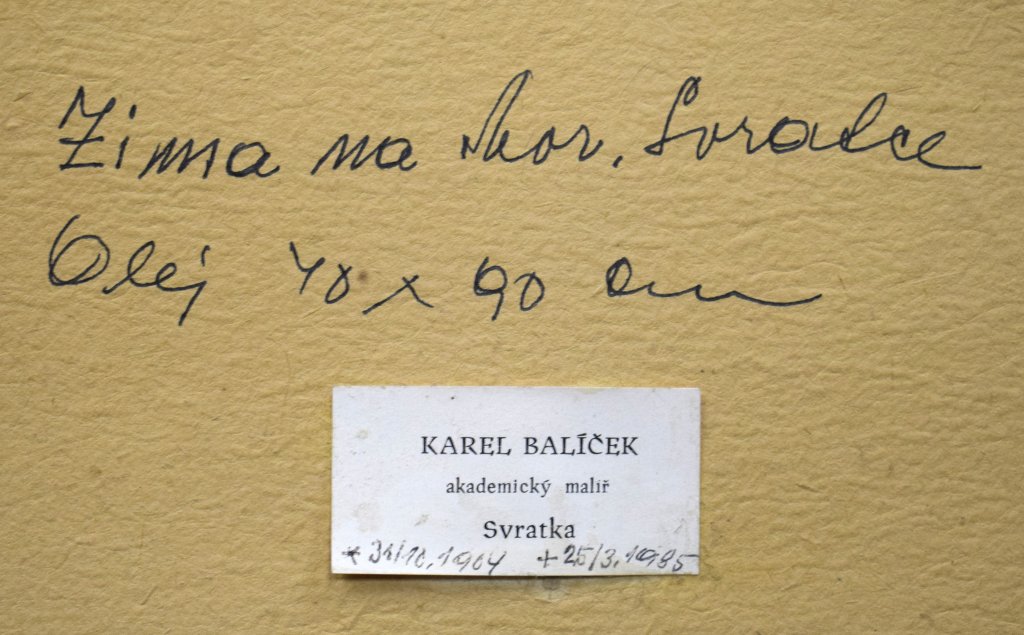 Zima na Mor. Svratce
Olej 70 x 90 cm
KAREL BALÍČEK
akademický malíř
Svratka
* 31/10.1904 + 25/3.1985